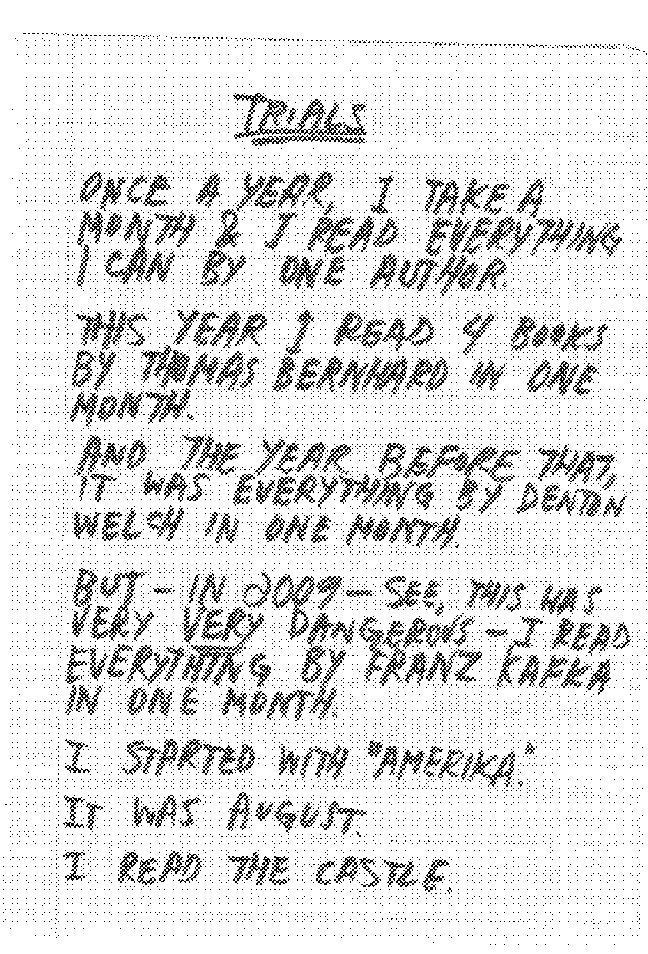 TRIALS
ONCE A YEAR, I TAKE A
MONTH & I READ EVERYTHING
I CAN BY ONE AUTHOR.
THIS YEAR I READ 4 BOOKS
BY THOMAS BERNHARD IN ONE
MONTH.
AND THE YEAR BEFORE THAT,
IT WAS EVERYTHING BY DENTON
WELCH IN ONE MONTH.
BUT – IN 2009 – SEE, THIS WAS
VERY VERY DANGEROUS – I READ
EVERYTHING BY FRANZ KAFKA
IN ONE MONTH.
I STARTED WITH "AMERIKA."
IT WAS AUGUST.
I READ THE CASTLE.